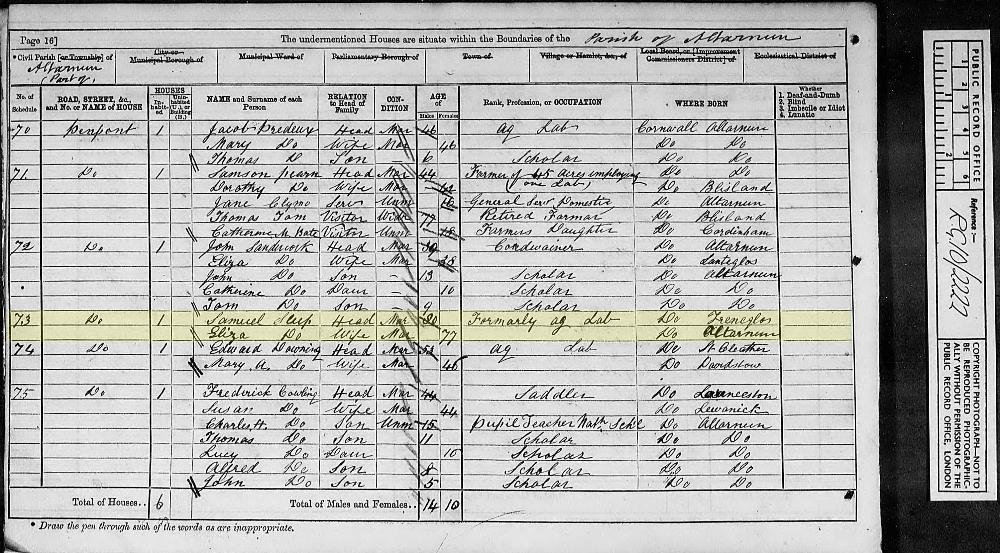 Page 16] The undermentioned Houses are situate within the Boundaries of the Parish of Altarnun
* Civil Parish [or Township] of City or Municipal Borough of Municipal Ward of Parliamentary Borough of Town of Village or Hamlet, &c., of Local Board, or [Improvement Commissioners District] of Ecclesiastical District of
Altarnun
(Part of)
No. of Schedule ROAD, STREET, &c., and No. or NAME of HOUSE HOUSES In-habited Unin-habited (U.), or Building (B.) NAME and Surname of each Person RELATION to Head of Family CON-DITION AGE of Males Females Rank, Profession, or OCCUPATION WHERE BORN Whether 1. Deaf-and-Dumb 2. Blind 3. Imbecile or Idiot 4. Lunatic
70 Penpont 1 Jacob Head Mar 46 Ag Lab Cornwall Altarnun
Mary Do Wife Mar 46 Do Do
Thomas D Son 6 Scholar Do Do
71 Do 1 Samson Pearn Head Mar 44 Farmer of 45 Acres employing one Lab, Do Do
Dorothy Do Wife Mar Do Blisland
Jane Clymo Serv Unm 16 General Serv Domestic Do Altarnun
Thomas Tom Visitor Widr Retired Farmer Do Blisland
Catherine M. Bate Visitor Unm Farmers Daughter Do Cardinham
72 Do 1 John Head Mar Cordwainer Do Altarnun
Eliza Do Wife Mar 38 Do Lanteglos
John Do Son – 13 Scholar Do Altarnun
Catherine Do Daur – 10 Scholar Do Do
Tom Do Son – 9 Scholar Do Do
73 Do 1 Samuel Sleep Head Mar 80 Formarly ag Lab Do Treneglos
Eliza Do Wife Mar 77 Do Altarnun
74 Do 1 Edward Downing Head Mar 53 Ag Lab Do St Cleather
Mary A. Do Wife Mar 46 Do Davidstow
75 Do 1 Frederick Cowling Head Mar 44 Saddler Do Launceston
Susan Do Wife Mar 44 Do Lewanick
Charles H. Do Son Unm 15 Pupil Teacher Natn Schl Do Altarnun
Thomas Do Son 11 Scholar Do Do
Lucy Do Daur 10 Scholar Do Do
Alfred Do Son 8 Scholar Do Do
John Do Son 5 Scholar Do Do
Total of Houses.. 6 Total of Males and Females.. 14 10
* Draw the pen through such of the words as are inappropriate.
PUBLIC RECORD OFFICE
1 2 3 4 5 6
1 2
Reference :-
RG10/2222
COPYRIGHT PHOTOGRAPH—NOT TO BE REPRODUCED PHOTOGRAPHICALLY WITHOUT PERMISSION OF THE PUBLIC RECORD OFFICE, LONDON